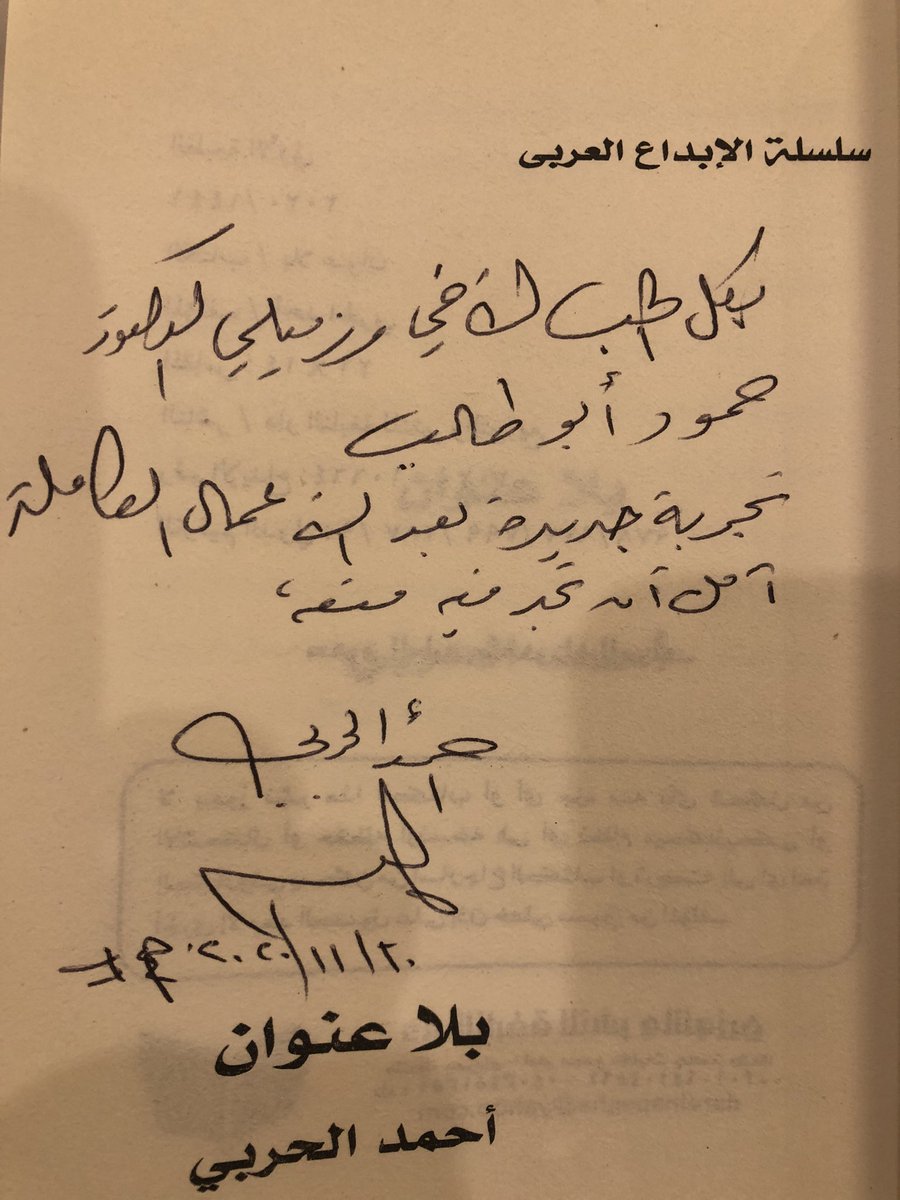 سلسلة الإبداع العربى
بكل الحب للأخي وزميلي الدكتور
حمود أبو طالب
تجربة جديدة بعد الأعمال الكاملة
آمل أن تجد فيه متعة،
أحمد الحربي
٢٠٢٠/١١/٢٠
بلا عنوان
أحمد الحربي